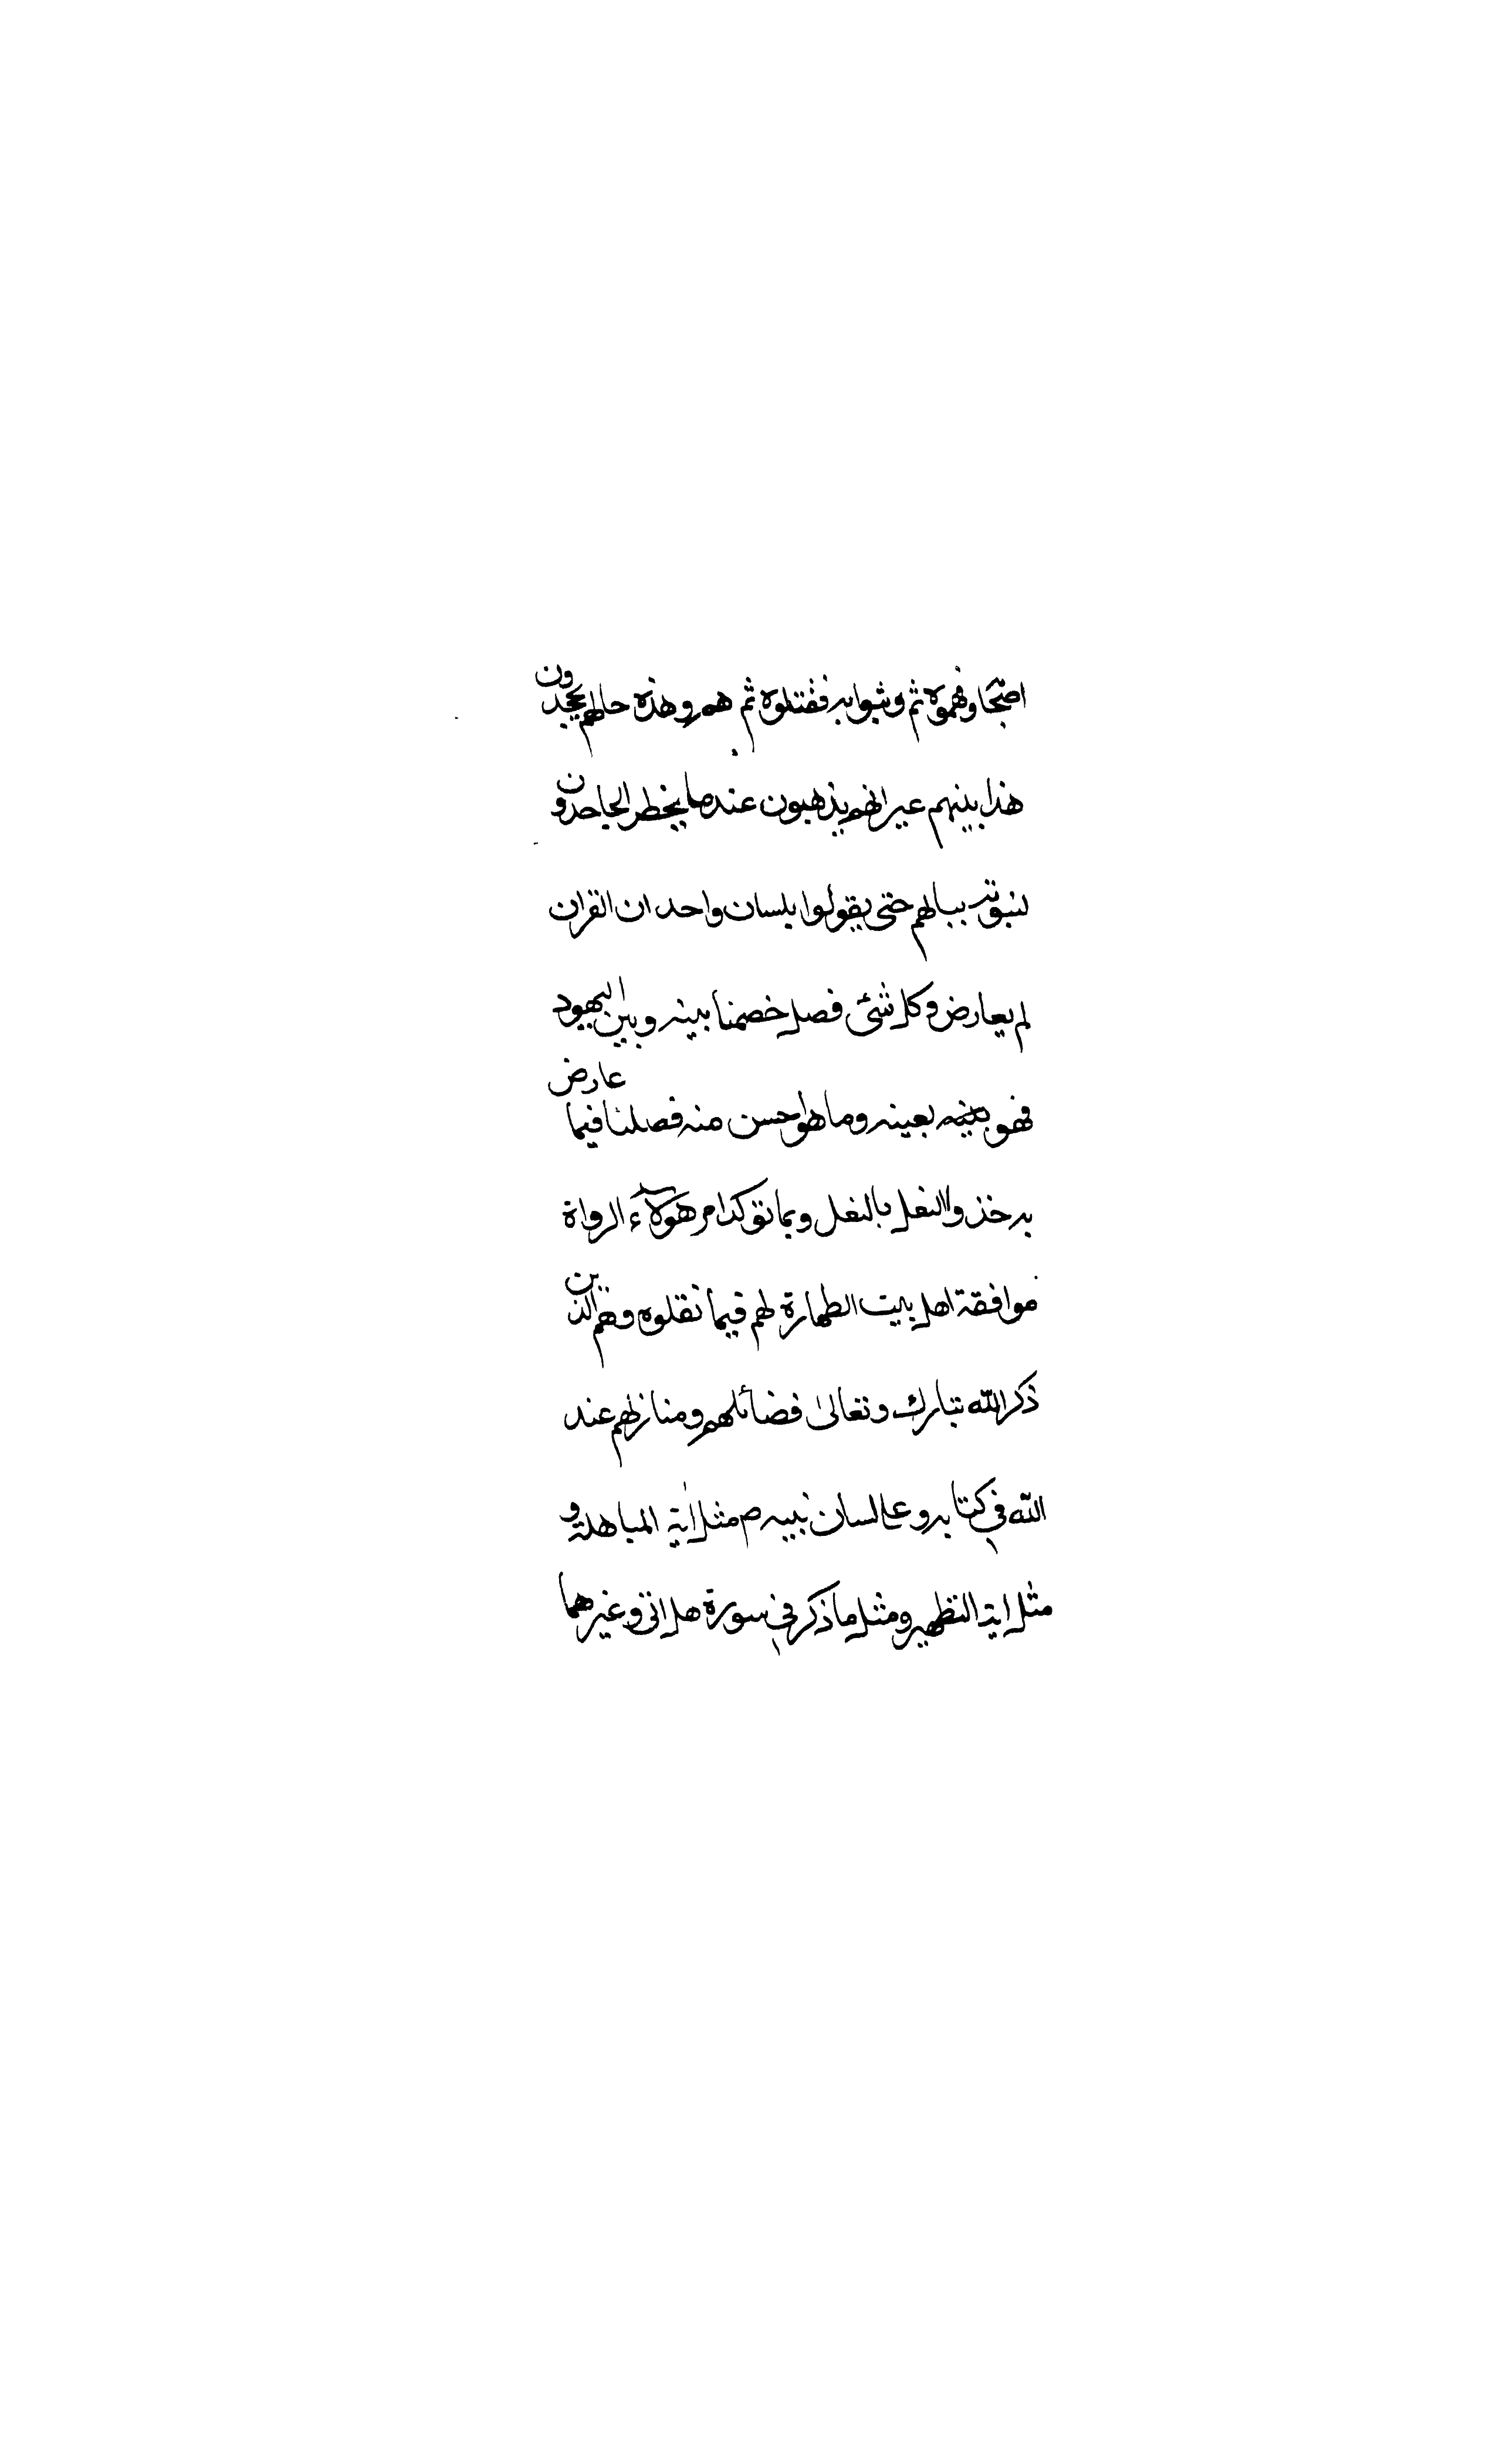 اضجّا وفهموه ثم وثبوا به فقتلوه ثم هم وهذه حالهم يجحدون
هذا بينهم غير انهم يذهبون عندما يخطر الجاحدون
لنبوته ببالهم حتى يقولوا بلسان واحد ان القران
لم يعارض وكل شئ فصل خصمنا بينه وبين اليهود
فهو بعينه بعينه وما هو احسن منه فصلنا فيما عارض
به حذو النعل بالنعل وبما توكد امر هؤلاء الرواة
موافقة اهل بيت الطهارة لهم فيما نقلوه وهم الذين
ذكر الله تبارك وتعالى فضائلهم ومنازلهم عند
الله في كتابه وعلى لسان نبيه ص مثل اية المباهلة و
مثل اية التطهير ومثل ما ذكر في سورة هل اتى وغيرهما